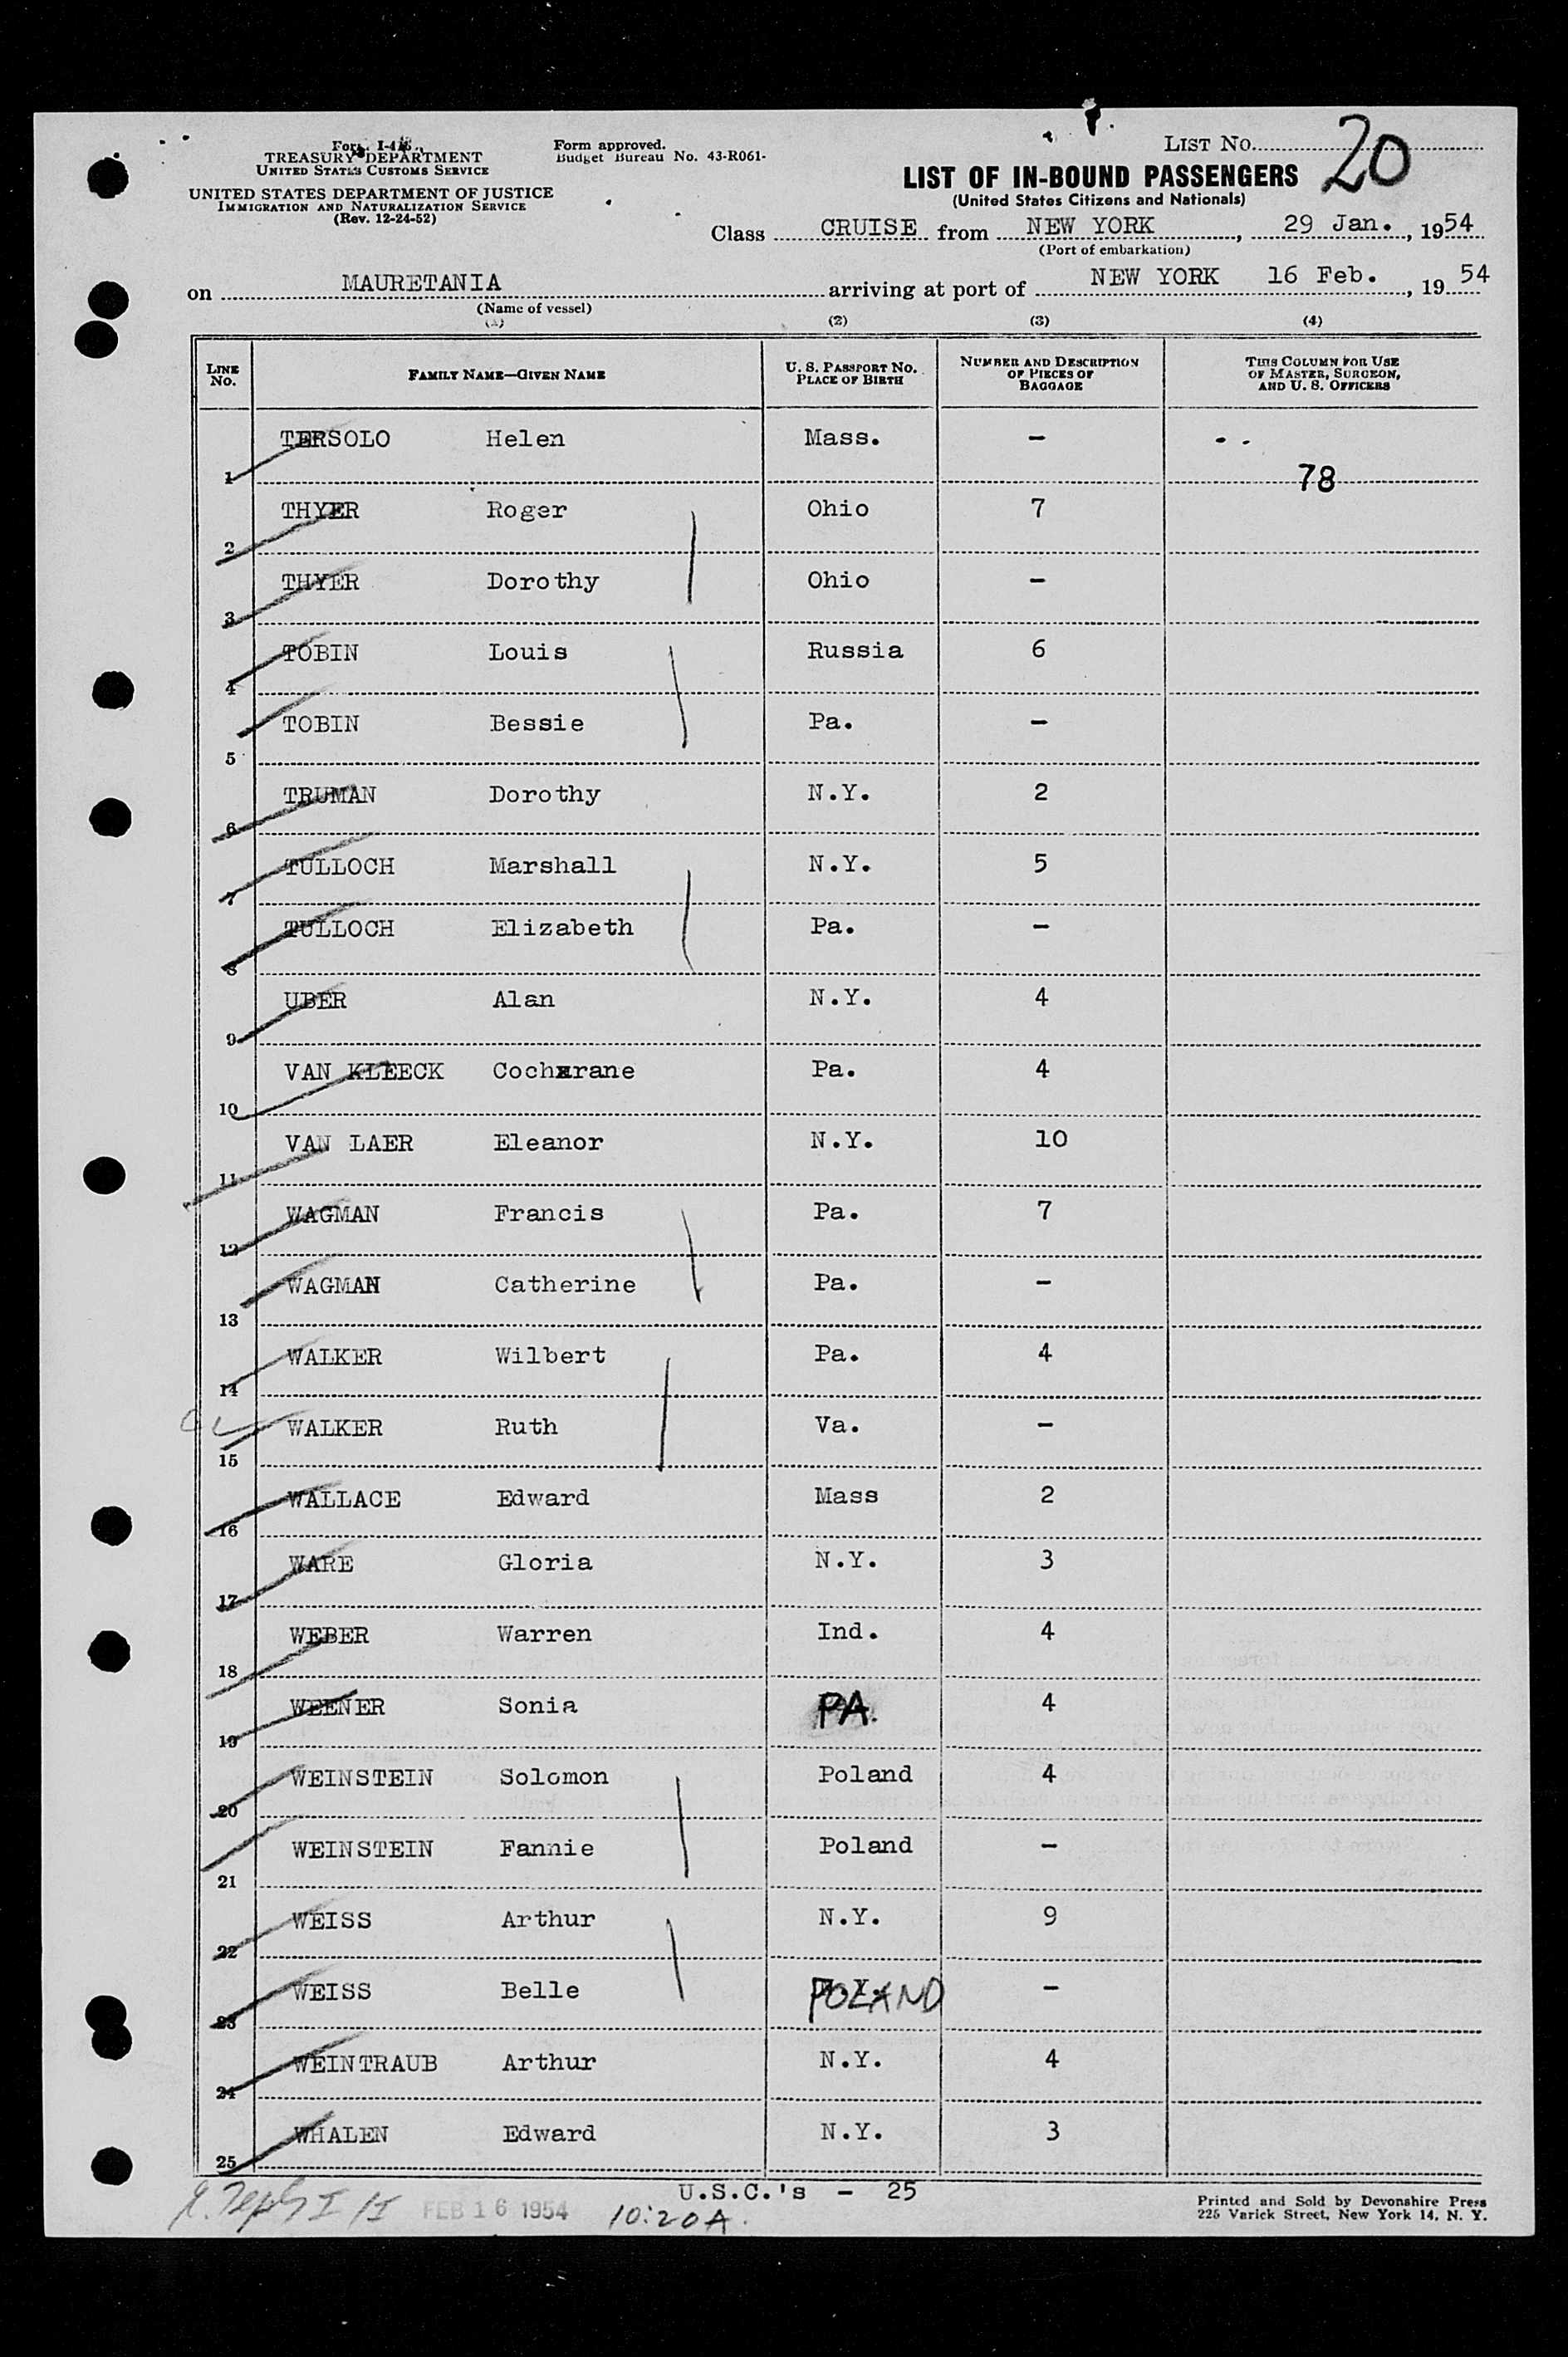 Form I-416
TREASURY DEPARTMENT
UNITED STATES CUSTOMS SERVICE
UNITED STATES DEPARTMENT OF JUSTICE
IMMIGRATION AND NATURALIZATION SERVICE
(Rev. 12-24-52)
Form approved.
Budget Bureau No. 43-R061-
LIST NO. 20
LIST OF IN-BOUND PASSENGERS
(United States Citizens and Nationals)
Class CRUISE from NEW YORK, 29 Jan., 1954
(Port of embarkation)
on MAURETANIA arriving at port of NEW YORK 16 Feb., 1954
(Name of vessel)
(1) (2) (3) (4)
LINE NO. FAMILY NAME—GIVEN NAME U. S. PASSPORT NO. PLACE OF BIRTH NUMBER AND DESCRIPTION OF PIECES OF BAGGAGE THIS COLUMN FOR USE OF MASTER, SURGEON, AND U. S. OFFICERS
1 TERSOLO Helen Mass. - 78
2 THYER Roger Ohio 7
3 THYER Dorothy Ohio -
4 TOBIN Louis Russia 6
5 TOBIN Bessie Pa. -
6 TRUMAN Dorothy N.Y. 2
7 TULLOCH Marshall N.Y. 5
8 TULLOCH Elizabeth Pa. -
9 UBER Alan N.Y. 4
10 VAN KLEECK Cochxrane Pa. 4
11 VAN LAER Eleanor N.Y. 10
12 WAGMAN Francis Pa. 7
13 WAGMAN Catherine Pa. -
14 WALKER Wilbert Pa. 4
15 WALKER Ruth Va. -
16 WALLACE Edward Mass 2
17 WARE Gloria N.Y. 3
18 WEBER Warren Ind. 4
19 WEENER Sonia PA. 4
20 WEINSTEIN Solomon Poland 4
21 WEINSTEIN Fannie Poland -
22 WEISS Arthur N.Y. 9
23 WEISS Belle POLAND -
24 WEINTRAUB Arthur N.Y. 4
25 WHALEN Edward N.Y. 3
U.S.C.'s - 25
FEB 16 1954 10:20A.
Printed and Sold by Devonshire Press
225 Varick Street, New York 14, N. Y.